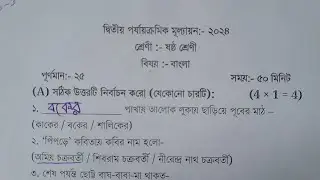 দ্বিতীয় পর্যায়ক্রমিক মূল্যায়ন:- ২০২৪
শ্রেণী :- ষষ্ঠ শ্রেণী
বিষয় :- বাংলা
পূর্ণমান:- ২৫ সময়:- ৫০ মিনিট
(A) সঠিক উত্তরটি নির্বাচন করো (যেকোনো চারটি): (4 × 1 = 4)
১. বকের পাখায় আলোক লুকায় ছাড়িয়ে পূবের মাঠ –
(কাকের / বকের / শালিকের)
২. "পিঁপড়ে" কবিতায় কবির নাম হলো-
(অমিয় চক্রবর্তী / শিবরাম চক্রবর্তী / নীরেন্দ্র নাথ চক্রবর্তী)
৩. শেষ পর্যন্ত ছোট্ট বাঘ-বাবা-মা থাকত-